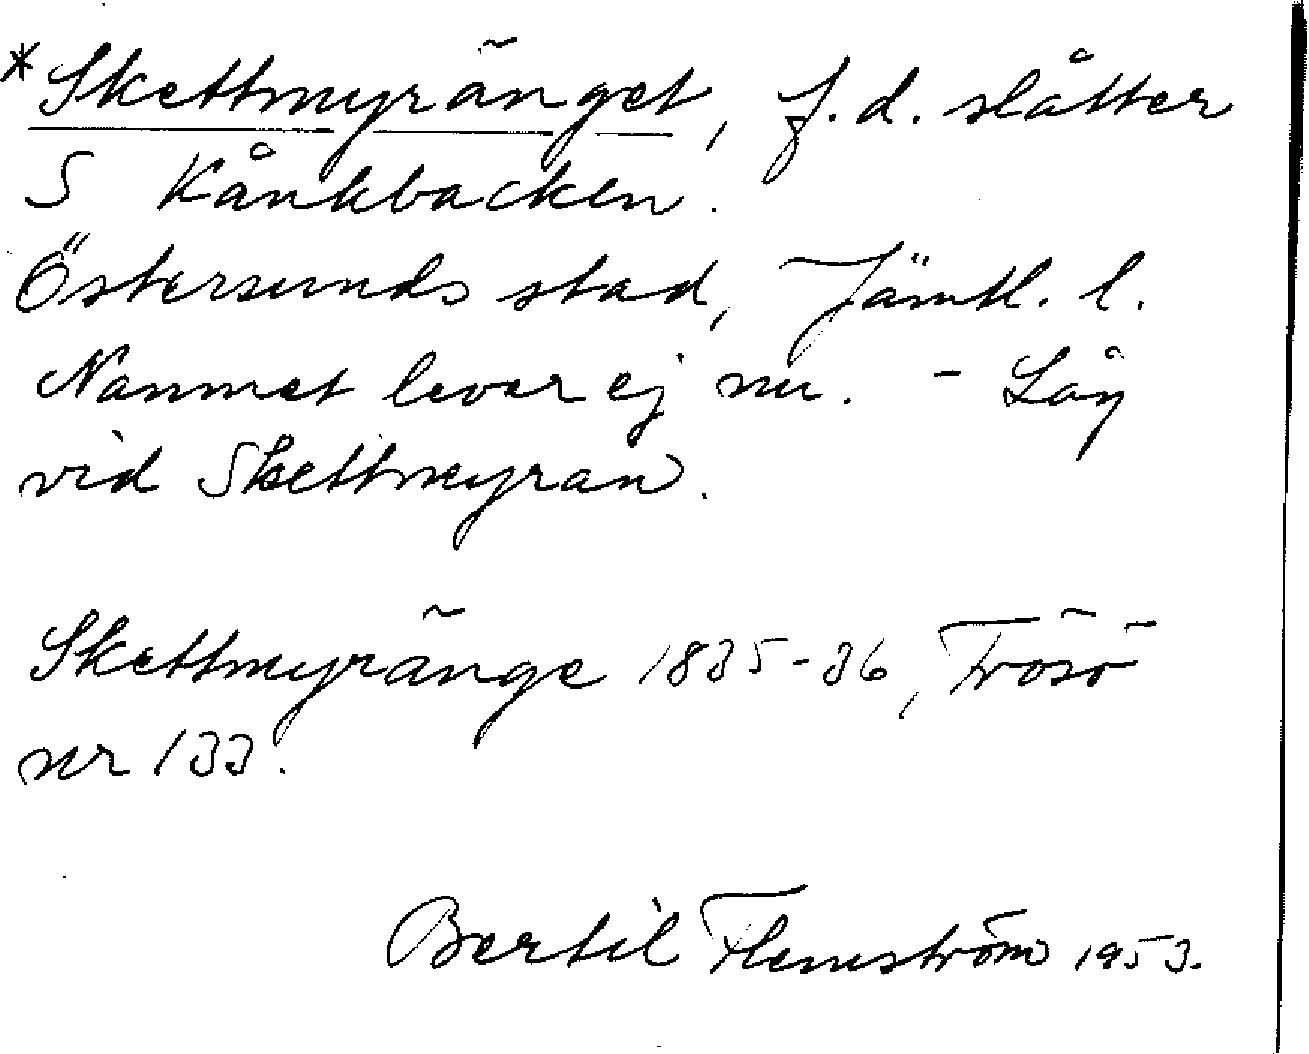 *Skettmyränget, f.d. slåtter
S Kånkbacken.
Östersunds stad, Jämtl. l.
Namnet levar ej nu. - Låg
vid Skettmyran.
Skettmyränge 1835-36, Frösö
nr 133.
Bertil Flemström 1953.